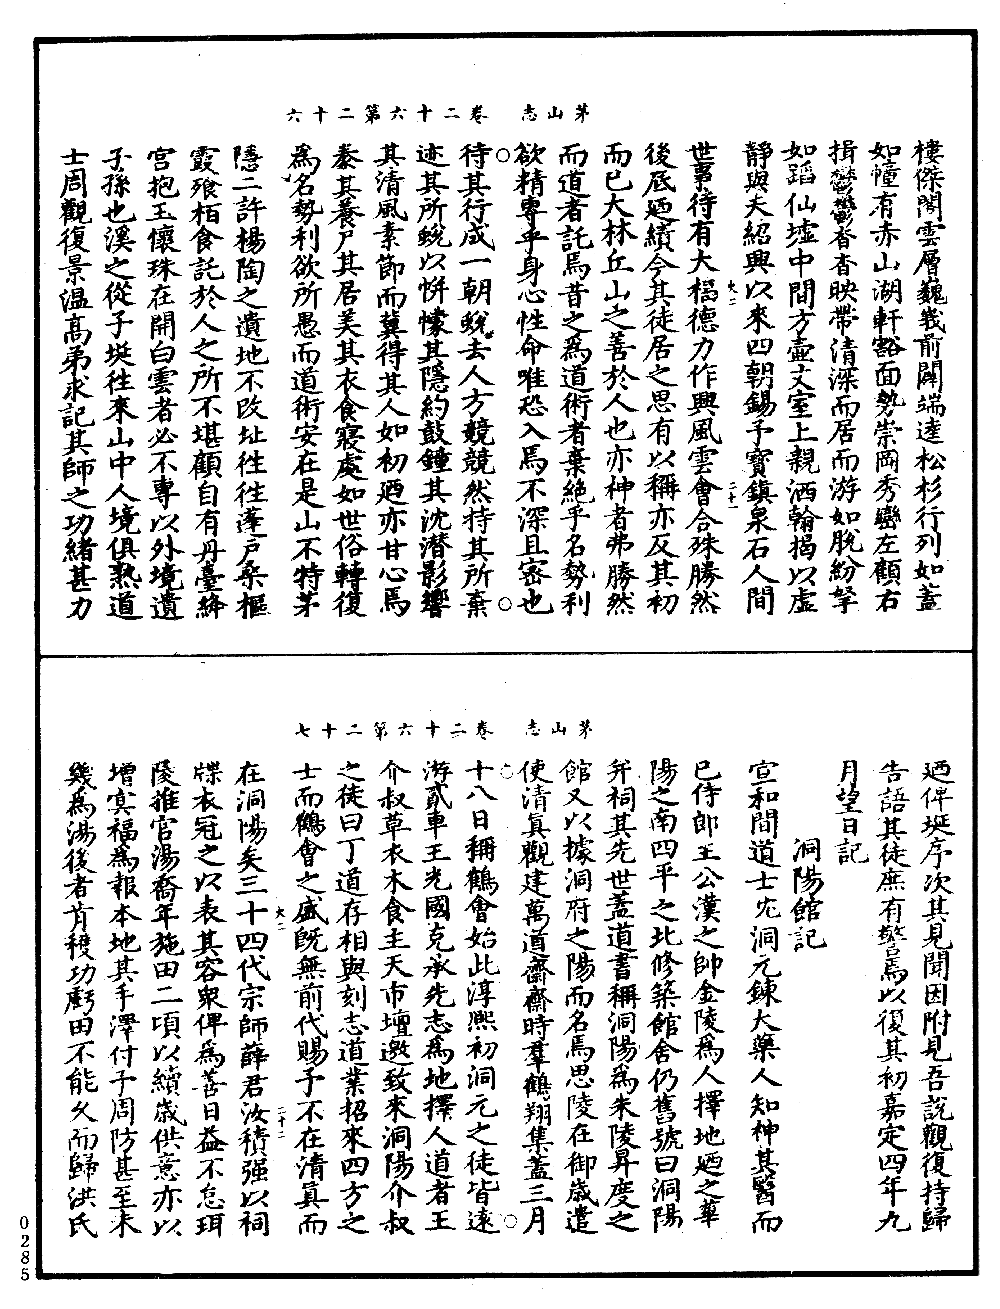 茅山志　卷二十六第二十六
樓傑閣雲層巍峩前闢端逵松杉行列如蓋
如幢有赤山湖軒豁面勢崇岡秀巒左顧右
揖鬱鬱杳杳映帶清深而居而游如脫紛拏
如蹈仙墟中間方壺丈室上親洒翰揭以虛
靜與夫紹興以來四朝錫予寶鎮泉石人間
世事待有大福德力作興風雲會合殊勝然
後底廼績今其徒居之思有以稱亦反其初
而已大林丘山之善於人也亦神者弗勝然
而道者託焉昔之為道術者棄絶乎名勢利
欲精專乎身心性命唯恐入焉不深且密也
待其行成一朝蛻去人方競競然持其所棄
迹其所蛻以恲懞其隱約鼓鐘其沈潜影響
其清風素節而冀得其人如初廼亦甘心焉
泰其養戶其居美其衣食寢處如世俗轉復
為名勢利欲所愚而道術安在是山不特茅
隱二許楊陶之遺地不改址往往蓬戶桑樞
霞飱柏食託於人之所不堪顧自有丹臺絳
宮抱玉懷珠在開白雲者必不專以外境遺
子孫也溪之從子埏往來山中人境俱熟道
士周觀復景溫高弟求記其師之功緒甚力
茅山志　卷二十六第二十七
廼俾埏序次其見聞因附見吾說觀復持歸
告語其徒庶有警焉以復其初嘉定四年九
月望日記
洞陽館記
宣和間道士沈洞元鍊大藥人知神其醫而
已侍郎王公漢之帥金陵為人擇地廼之華
陽之南四平之北修築館舍仍舊號曰洞陽
并祠其先世蓋道書稱洞陽為朱陵昇度之
館又以據洞府之陽而名焉思陵在御歲遣
使清真觀建萬道齋齋時羣鶴翔集蓋三月
十八日稱鶴會始此淳熙初洞元之徒皆遠
游貳車王光國克承先志為地擇人道者王
介叔草衣木食主天市壇邀致來洞陽介叔
之徒曰丁道存相與刻志道業招來四方之
士而鶴會之盛旣無前代賜予不在清真而
在洞陽矣三十四代宗師薛君汝積强以祠
牒衣冠之以表其容衆俾為善日益不怠珥
陵推官湯喬年施田二頃以續歲供意亦以
增寘福為報本地其手澤付子周防甚至未
幾為湯後者肯穫功虧田不能久而歸洪氏
大二
二十一
大二
二十二
0285